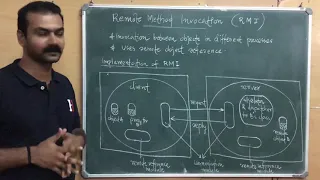 Remote Method Invocation (RMI)
* Invocation between objects in different processes
* Uses remote object reference
Implementation of RMI
client
server
object A
proxy for B
request
reply
skeleton
& dispatcher
for B's class
remote
object B
remote reference
module
communication
module
remote reference
module